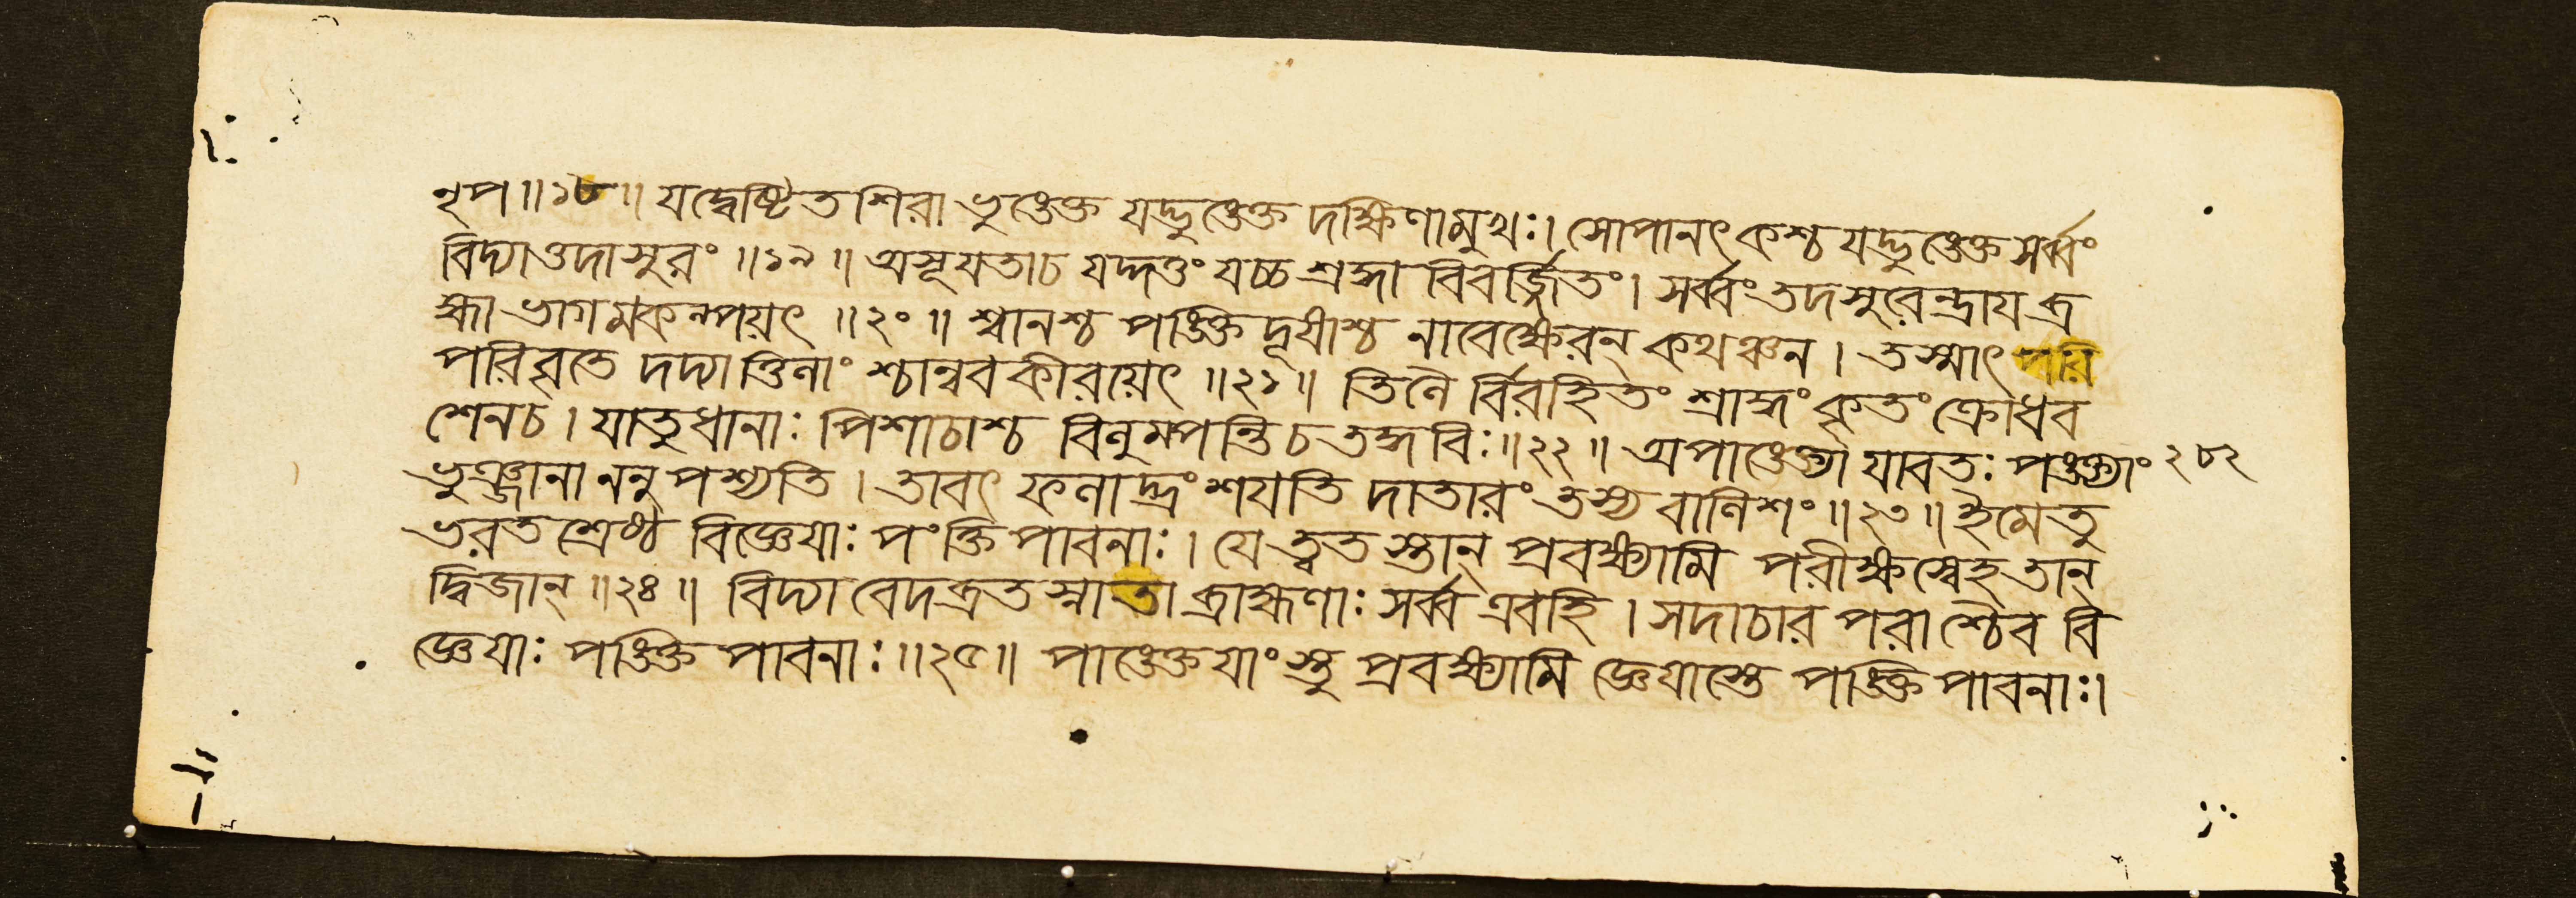 নৃপ ॥ ১৮ ॥ যদ্বেষ্টিতশিরা ভুঙেক্ত যদ্ভুঙেক্ত দক্ষিণামুখঃ। সোপানৎকশ্চ যদ্ভুঙেক্ত সর্ব্বং
বিদ্যাত্তদাসুরং ॥ ১৯ ॥ অসূযতাচ যদ্দত্তং যচ্চ শ্রদ্ধা বিবর্জ্জিতং। সর্ব্বং তদসুরেন্দ্রায ব্র
হ্মা ভাগমকল্পয়ৎ ॥ ২০ ॥ শ্বানশ্চ পঙিক্ত দূষাশ্চ নাবেক্ষেরন্ কথঞ্চন। তস্মাৎ পরি
পরিবৃতে দদ্যাত্তিলাং শ্চান্ববকীরয়েৎ ॥ ২১ ॥ তিলৈ র্বিরহিতং শ্রাদ্ধং কৃতং ক্রোধব
শেনচ। যাতুধানাঃ পিশাচাশ্চ বিলুম্পন্তি চ তদ্ধবিঃ ॥ ২২ ॥ অপাঙেক্ত্যা যাবতঃ পঙক্ত্যাং ২৮২
ভুঞ্জানা ননুপশ্যতি। তাবৎ ফলাদ্ভ্রংশযতি দাতারং তস্য বালিশং ॥ ২৩ ॥ ইমে তু
ভরতশ্রেষ্ঠ বিজ্ঞেযাঃ পংক্তি পাবনাঃ। যে ত্বত স্তান্ প্রবক্ষ্যামি পরীক্ষস্বেহ তান্
দ্বিজান্ ॥ ২৪ ॥ বিদ্যা বেদব্রত স্নাতা ব্রাহ্মণাঃ সর্ব্ব এবহি। সদাচার পরা শ্চৈব বি
জ্ঞেযাঃ পঙিক্ত পাবনাঃ ॥ ২৫ ॥ পাঙেক্তযাং স্তু প্রবক্ষ্যামি জ্ঞেযাস্তে পঙিক্ত পাবনাঃ।